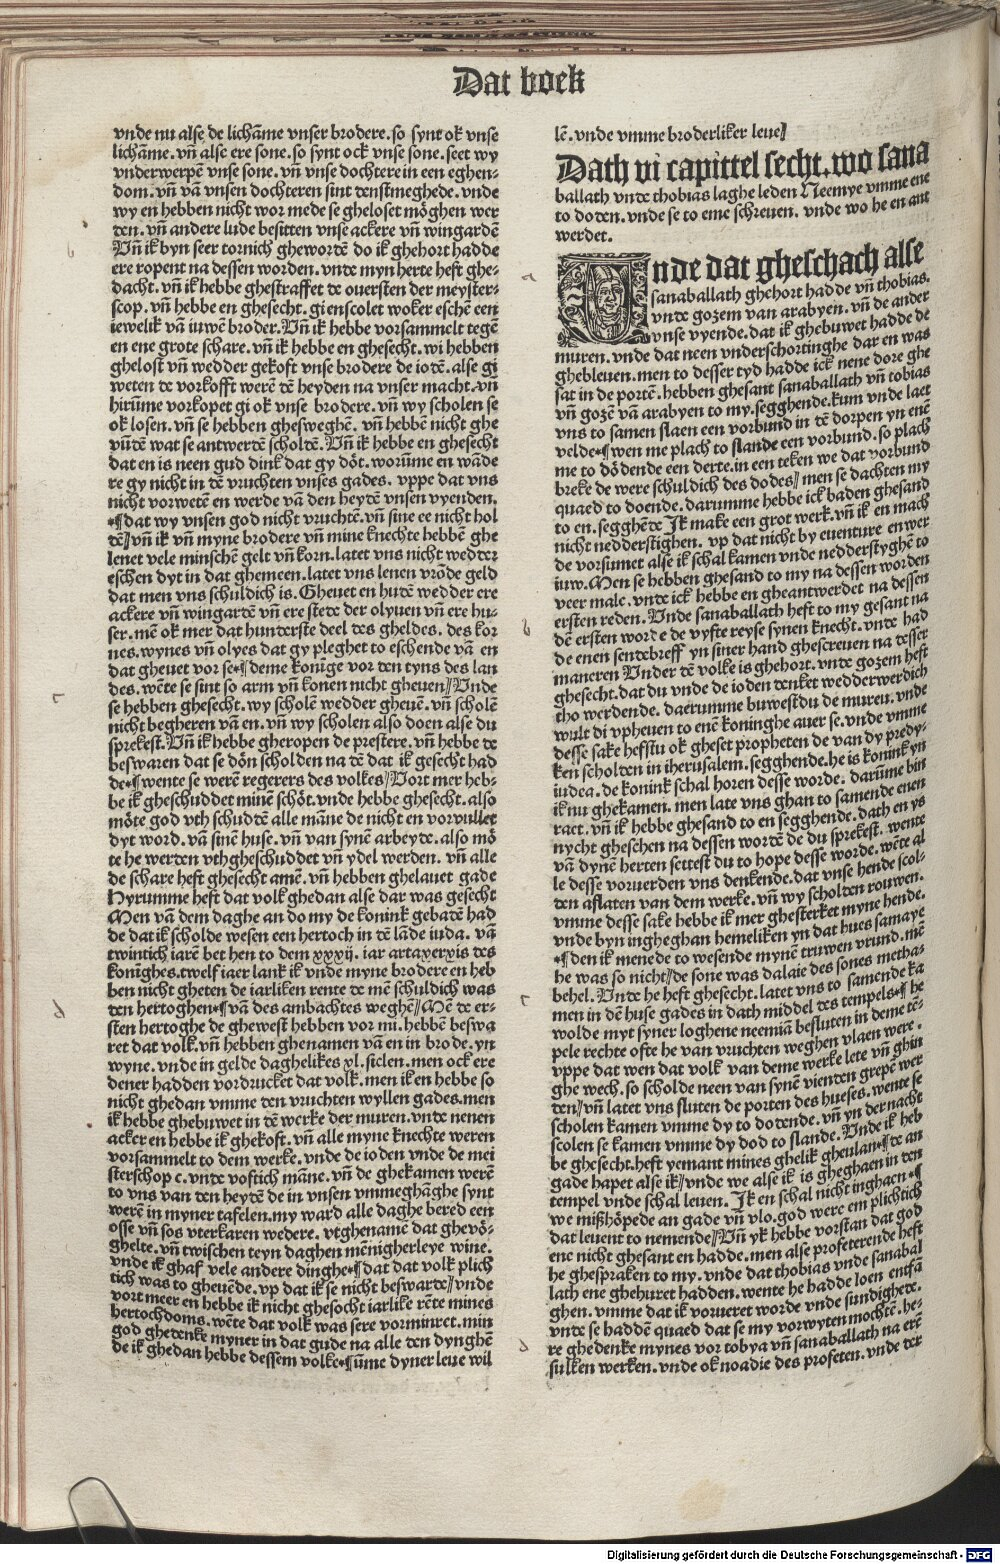 Dat boek
vnde nu alse de lichāme vnser brodere. so synt ok vnse
lichāme. vñ alse ere sone. so synt ock vnse sone. seet wy
vnderwerpē vnse sone. vñ vnse dochtere in een eghen-
dom. vñ vā vnsen dochteren sint denstmeghede. vnde
wy en hebben nicht wor mede se gheloset mŏghen wer
den. vñ andere lude besitten vnse ackere vñ wingardē
Vñ ik byn seer tornich ghewordē do ik ghehort hadde
ere ropent na dessen worden. vnde myn herte heft ghe-
dacht. vñ ik hebbe ghestraffet de ouersten der meyster-
scop. vñ hebbe en ghesecht. gi enscolet woker eschē een
iewelik vā iuwē broder. Vñ ik hebbe vorsammelt tegē
en ene grote schare. vñ ik hebbe en ghesecht. wi hebben
ghelost vñ wedder gekoft vnse brodere de iodē. alse gi
weten de vorkofft werē dē heyden na vnser macht. vñ
hirūme vorkopet gi ok vnse brodere. vñ wy scholen se
ok losen. vñ se hebben gheswegħē. vñ hebbē nicht ghe
vūdē wat se antwerdē scholdē. Vñ ik hebbe en ghesecht
dat en is neen gud dink dat gy dŏt. worūme en wāde
re gy nicht in dē vruchten vnses gades. vppe dat vns
nicht vorwetē en werde vā den heydē vnsen vyenden.
*¶dat wy vnsen god nicht vruchtē. vñ sine ee nicht hol
dē//vñ ik vñ myne brodere vñ mine knechte hebbē ghe
lenet vele minschē gelt vñ korn. latet vns nicht wedder
eschen dyt in dat ghemeen. latet vns lenen vrŏde geld
dat men vns schuldich is. Gheuet en hudē wedder ere
ackere vñ wingardē vñ ere stede der olyuen vñ ere hu-
ser. mē ok mer dat hunderste deel des gheldes. des kor
nes. wynes vñ olyes dat gy pleghet to eschende vā en
dat gheuet vor se*¶deme konīge vor den tyns des lan
des. wēte se sint so arm vñ konen nicht gheuen//Vnde
se hebben ghesecht. wy scholē wedder gheuē. vñ scholē
nicht begheren vā en. vñ wy scholen also doen alse du
sprekest. Vñ ik hebbe gheropen de prestere. vñ hebbe de
beswaren dat se dŏn scholden na dē dat ik gesecht had
de*¶wente se werē regerers des volkes//Vort mer heb-
be ik gheschuddet minē schŏt. vnde hebbe ghesecht. also
mŏte god vth schudē alle māne de nicht en vorvullet
dyt word. vā sinē huse. vñ van synē arbeyde. also mŏ
te he werden vthgheschuddet vñ ydel werden. vñ alle
de schare heft ghesecht amē. vñ hebben ghelauet gade
Hyrumme heft dat volk ghedan alse dar was gesecht
Men vā dem daghe an do my de konink gebadē had
de dat ik scholde wesen een hertoch in dē lāde iuda. vā
twintich iarē bet hen to dem xxxij. iar artaxerxis des
konīghes. twelf iaer lank ik vnde myne brodere en heb
ben nicht gheten de iarliken rente de mē schuldich was
den hertoghen*¶vā des ambachtes weghē//Mē de er-
sten hertoghe de ghewest hebben vor mi. hebbē beswa
ret dat volk. vñ hebben ghenamen vā en in brode. yn
wyne. vnde in gelde daghelikes xl. siclen. men ock ere
dener hadden vordrucket dat volk. men ik en hebbe so
nicht ghedan vmme den vruchten wyllen gades. men
ik hebbe ghebuwet in dē werke der muren. vnde nenen
acker en hebbe ik ghekoft. vñ alle myne knechte weren
vorsammelt to dem werke. vnde de ioden vnde de mei
sterschop c. vnde voftich māne. vñ de ghekamen werē
to vns van den heydē de in vnsen vmmeghāghe synt
werē in myner tafelen. my ward alle daghe bered een
osse vñ sos vterkaren wedere. vtghenamē dat ghevŏ-
ghelte. vñ twischen teyn daghen mēnigherleye wine.
vnde ik ghaf vele andere dinghe*¶dat dat volk plich
tich was to gheuēde. vp dat ik se nicht beswarde//vnde
vort meer en hebbe ik nicht ghesocht iarlike rēte mines
hertochdoms. wēte dat volk was sere vorminret. min
god ghedenke myner in dat gude na alle den dynghē
de ik ghedan hebbe dessem volke*¶ūme dyner leue wil
lē. vnde vmme broderliker leue//
Dath vi capittel secht. wo sana
ballath vnde thobias laghe leden Neemye vmme ene
to doden. vnde se to eme schreuen. vnde wo he en ant
werdet.
Vnde dat gheschach alse
sanaballath ghehort hadde vñ thobias.
vnde gozem van arabyen. vñ de ander
vnse vyende. dat ik ghebuwet hadde de
muren. vnde dat neen vnderschortinghe dar en was
ghebleuen. men to desser tyd hadde ick nene dore ghe
sat in de portē. hebben ghesant sanaballath vñ tobias
vñ gozē vā arabyen to my. segghende. kum vnde laet
vns to samen slaen een vorbund in dē dorpen yn enē
velde*¶wen me plach to slande een vorbund. so plach
me to dŏdende een derte. in een teken we dat vorbund
breke de were schuldich des dodes//men se dachten my
quaed to doende. darumme hebbe ick baden ghesand
to en. segghēde Ik make een grot werk. vñ ik en mach
nicht nedderstighen. vp dat nicht by euenture en wer
de vorsumet alse ik schal kamen vnde nedderstyghē to
iuw. Men se hebben ghesand to my na dessen worden
veer male. vnde ick hebbe en gheantwerdet na dessen
ersten reden. Vnde sanaballath heft to my gesant na
dē ersten worde de vyfte reyse synen knecht. vnde had
de enen sendebreff yn siner hand ghescreuen na desser
maneren Vnder dē volke is ghehort. vnde gozem heft
ghesecht. dat du vnde de ioden denket wedderwerdich
tho werdende. daerumme buwestdu de muren. vnde
wult di vpheuen to enē koninghe auer se. vnde vmme
desse sake hefstu ok gheset propheten de van dy predy-
ken scholden in iherusalem. segghende. he is konink yn
iudea. de konink schal horen desse worde. darūme bin
ik nu ghekamen. men late vns ghan to samende enen
raet. vñ ik hebbe ghesand to en segghende. dath en ys
nycht gheschen na dessen wordē de du sprekest. wente
vā dynē herten settest du to hope desse worde. wēte al
le desse voruerden vns denkende. dat vnse hende scol-
den aflaten van dem werke. vñ wy scholden rouwen.
vmme desse sake hebbe ik mer ghesterket myne hende.
vnde byn ingheghan hemeliken yn dat hues samaye
*¶den ik menede to wesende mynē truwen vrund. mē
he was so nicht//de sone was dalaie des sones metha-
behel. Vnde he heft ghesecht. latet vns to samende ka
men in dē huse gades in dath middel des tempels*¶he
wolde myt syner loghene neemiā besluten in deme tē-
pele rechte ofte he van vruchten weghen vlaen were.
vppe dat wen dat volk van deme werke lete vñ ghin
ghe wech. so scholde neen van synē vienden grepē wer
den//vñ latet vns sluten de porten des hueses. wente se
scholen kamen vmme dy to dodende. vñ yn der nacht
scolen se kamen vmme dy dod to slande. Vnde ik heb
be ghesecht. heft yemant mines ghelik gheulan*¶de an
gade hapet alse ik//vnde we alse ik is gheghaen in den
tempel vnde schal leuen. Ik en schal nicht inghaen*¶
we mißhŏpede an gade vñ vlo. god were em plichtich
dat leuent to nemende//Vñ yk hebbe vorstan dat god
ene nicht ghesant en hadde. men alse profeterende heft
he ghespraken to my. vnde dat thobias vnde sanabal
lath ene ghehuret hadden. wente he hadde loen entfā
ghen. vmme dat ik vorueret worde vnde sundighede.
vnde se haddē quaed dat se my vorwyten mochtē. he-
re ghedenke mynes vor tobya vñ sanaballath na erē
sulken werken. vnde ok noadie des profeten. vnde der
Digitalisierung gefördert durch die Deutsche Forschungsgemeinschaft - DFG